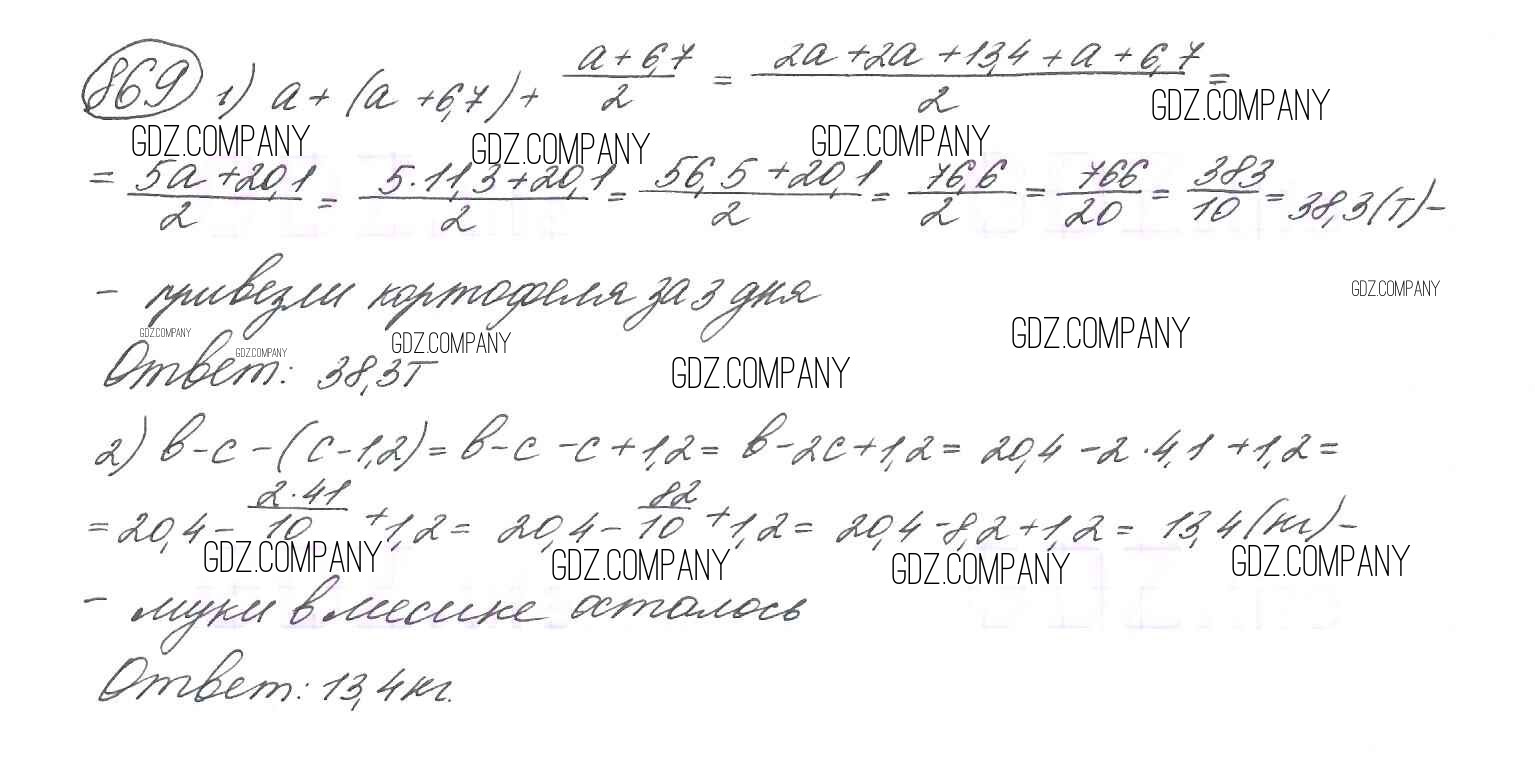 869 1) a + (a + 6,7) + a + 6,7 / 2 = 2a + 2a + 13,4 + a + 6,7 / 2 =
GDZ.COMPANY
GDZ.COMPANY GDZ.COMPANY GDZ.COMPANY
= 5a + 20,1 / 2 = 5·11,3 + 20,1 / 2 = 56,5 + 20,1 / 2 = 76,6 / 2 = 766 / 20 = 383 / 10 = 38,3 (т) –
– привезли картофеля за 3 дня
GDZ.COMPANY
GDZ.COMPANY GDZ.COMPANY GDZ.COMPANY GDZ.COMPANY
Ответ: 38,3т
GDZ.COMPANY
2) в – с – (с – 1,2) = в – с – с + 1,2 = в – 2с + 1,2 = 20,4 – 2·4,1 + 1,2 =
= 20,4 – 2·41 / 10 + 1,2 = 20,4 – 82 / 10 + 1,2 = 20,4 – 8,2 + 1,2 = 13,4 (кг) –
GDZ.COMPANY GDZ.COMPANY GDZ.COMPANY GDZ.COMPANY
– муки в мешке осталось
Ответ: 13,4 кг.